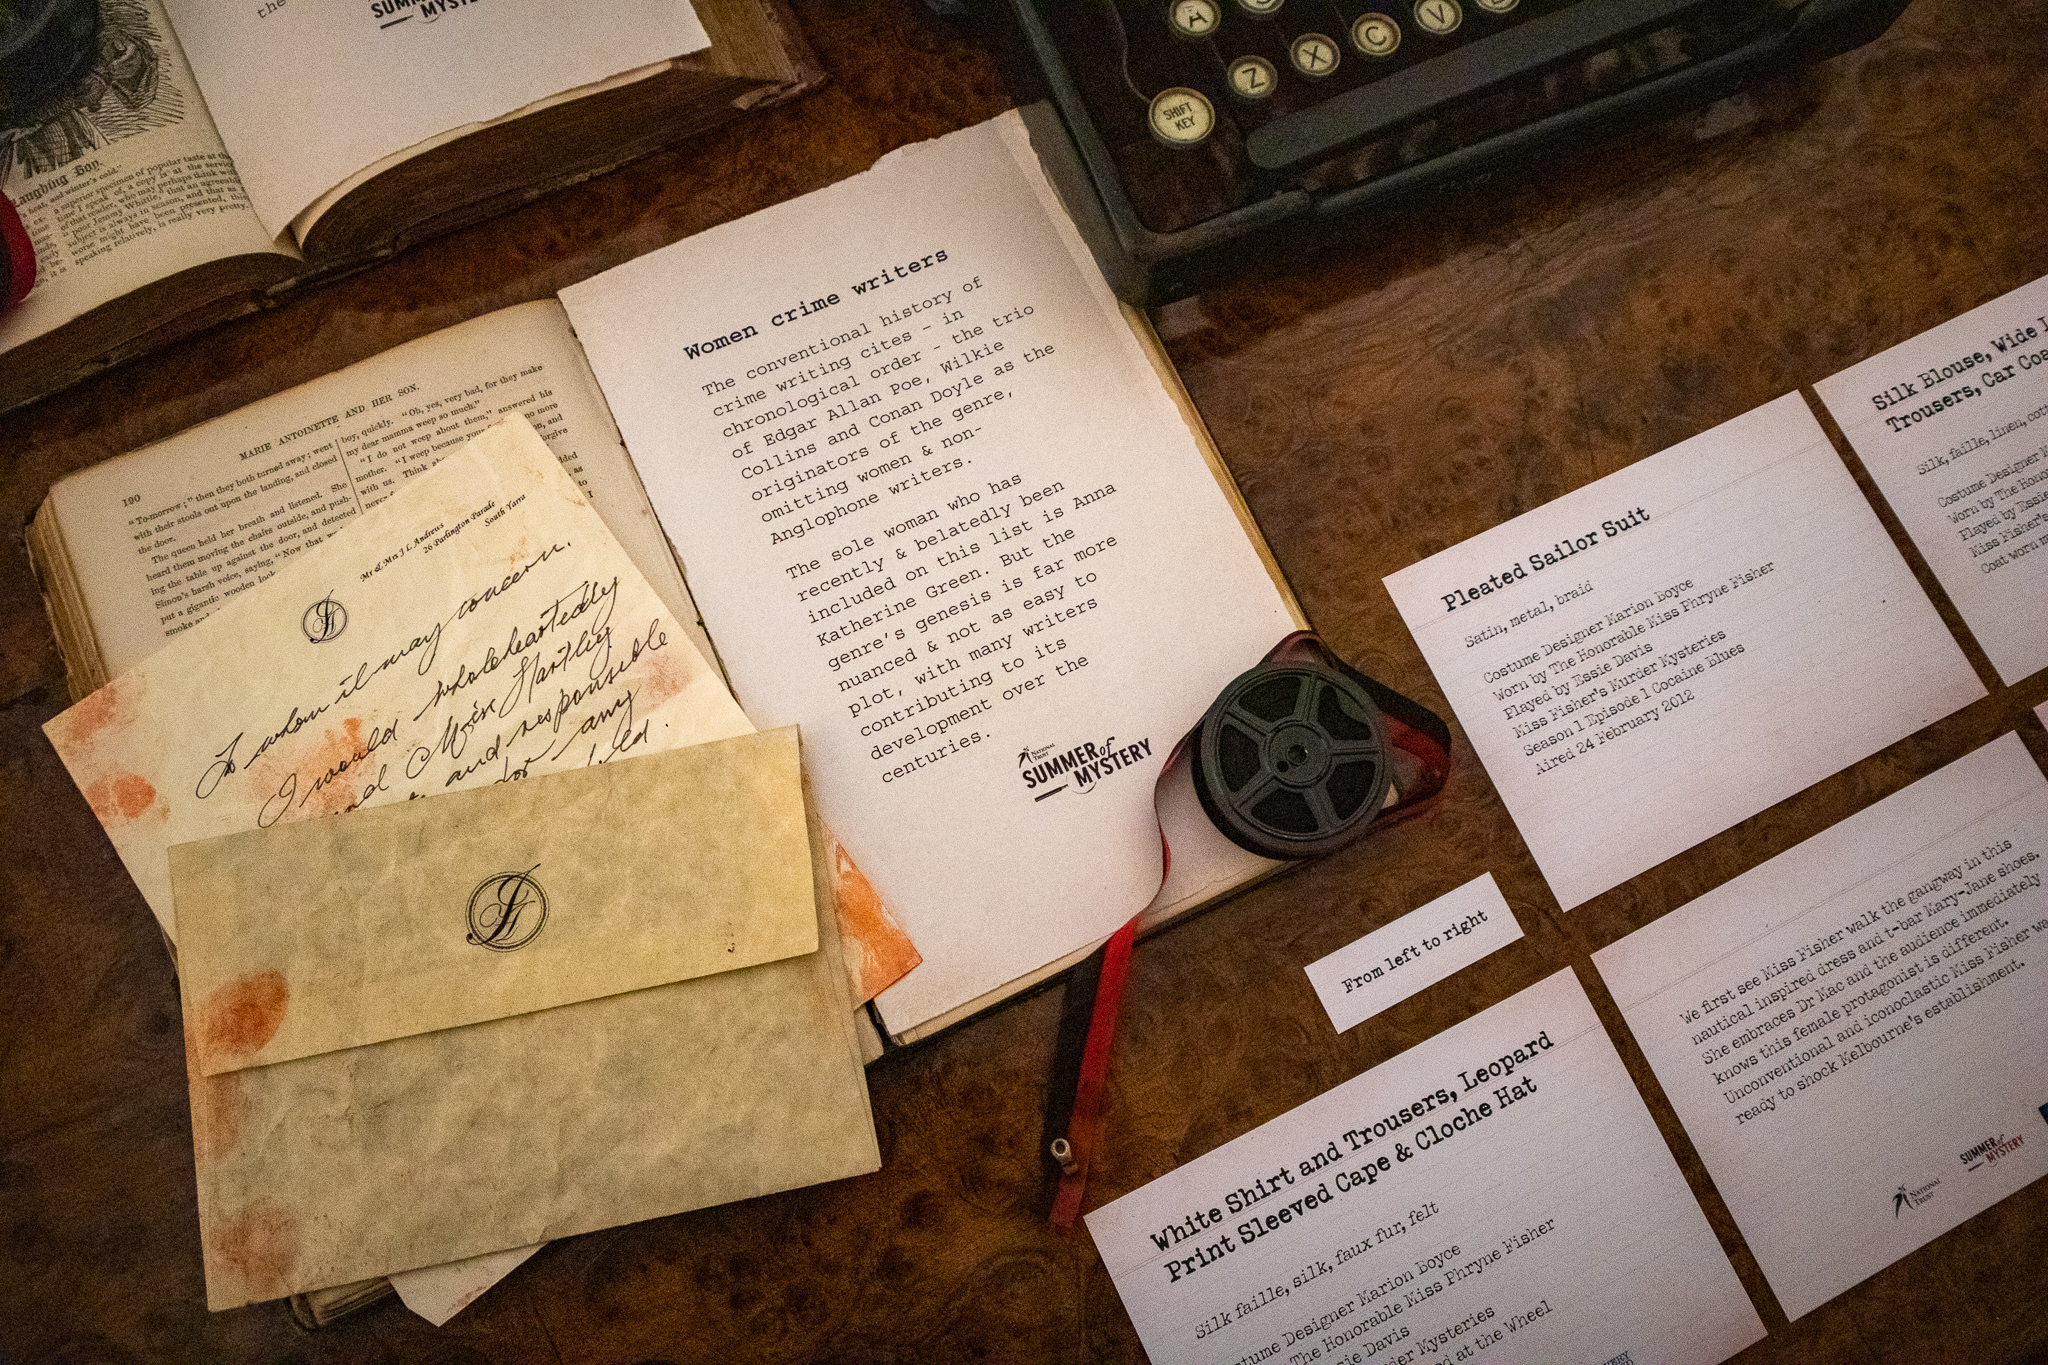 the
SUMMER
MYSTERY
A
Z
X
C
V
SHIFT
KEY
winter's cold."
a superior specimen of popular taste at the
time I speak of, a copy is at the service
of that reader, who may perhaps think with
poor Jemmy Whittle, that an agreeable
subject is always in season, and that as a
worse might have been presented, this,
speaking relatively, is really very pretty.
190
MARIE ANTOINETTE AND HER SON.
"To-morrow;" then they both turned away; went
with their stools out upon the landing, and closed
the door.
The queen held her breath and listened. She
heard them moving the chairs outside, and push-
ing the table up against the door, and detected
Simon's harsh voice, saying, "Now that
put a gigantic wooden lock
smoke and
boy, quickly. "Oh, yes, very bad, for they make
my dear mamma weep so much."
"I do not weep about them," answered his
mother. "I weep because your
with us. Think
no more
Mr & Mrs J L Andrews
26 Parlington Parade
South Yarra
To whom it may concern.
I would wholeheartedly
Miss Hartley
and responsible
for any
Women crime writers
The conventional history of
crime writing cites – in
chronological order – the trio
of Edgar Allan Poe, Wilkie
Collins and Conan Doyle as the
originators of the genre,
omitting women & non-
Anglophone writers.
The sole woman who has
recently & belatedly been
included on this list is Anna
Katherine Green. But the
genre's genesis is far more
nuanced & not as easy to
plot, with many writers
contributing to its
development over the
centuries.
NATIONAL
TRUST
SUMMER of
MYSTERY
Silk Blouse, Wide
Trousers, Car
Silk, faille, linen,
Costume Designer
Worn by The
Played by Essie
Miss Fisher's
Coat worn
Pleated Sailor Suit
Satin, metal, braid
Costume Designer Marion Boyce
Worn by The Honorable Miss Phryne Fisher
Played by Essie Davis
Miss Fisher's Murder Mysteries
Season 1 Episode 1 Cocaine Blues
Aired 24 February 2012
From left to right
We first see Miss Fisher walk the gangway in this
nautical inspired dress and t-bar Mary-Jane shoes.
She embraces Dr Mac and the audience immediately
knows this female protagonist is different.
Unconventional and iconoclastic Miss Fisher
ready to shock Melbourne's establishment.
NATIONAL
TRUST
SUMMER of
MYSTERY
White Shirt and Trousers, Leopard
Print Sleeved Cape & Cloche Hat
Silk faille, silk, faux fur, felt
Designer Marion Boyce
The Honorable Miss Phryne Fisher
Davis
Mysteries
at the Wheel